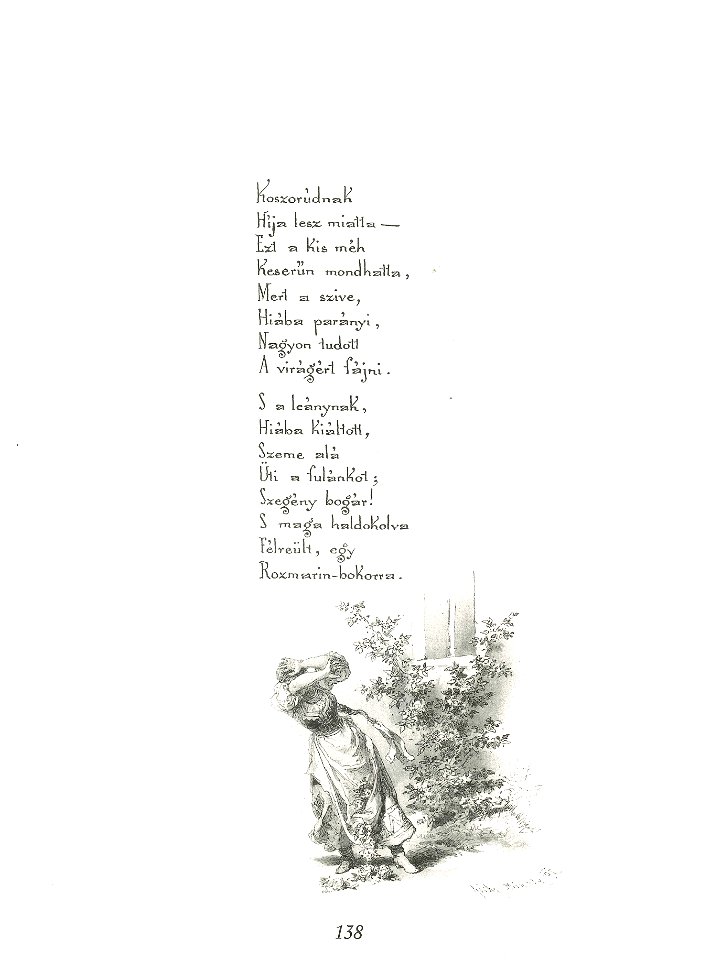 Koszorúdnak
Híja lesz miatta —
Ezt a kis méh
Keserűn mondhatta,
Mert a szive,
Hiába parányi,
Nagyon tudott
A virágért fájni.
S a leánynak,
Hiába kiáltott,
Szeme alá
Üti a fulánkot;
Szegény bogár!
S maga haldokolva
Félreült, egy
Rozmarin-bokorra.
138